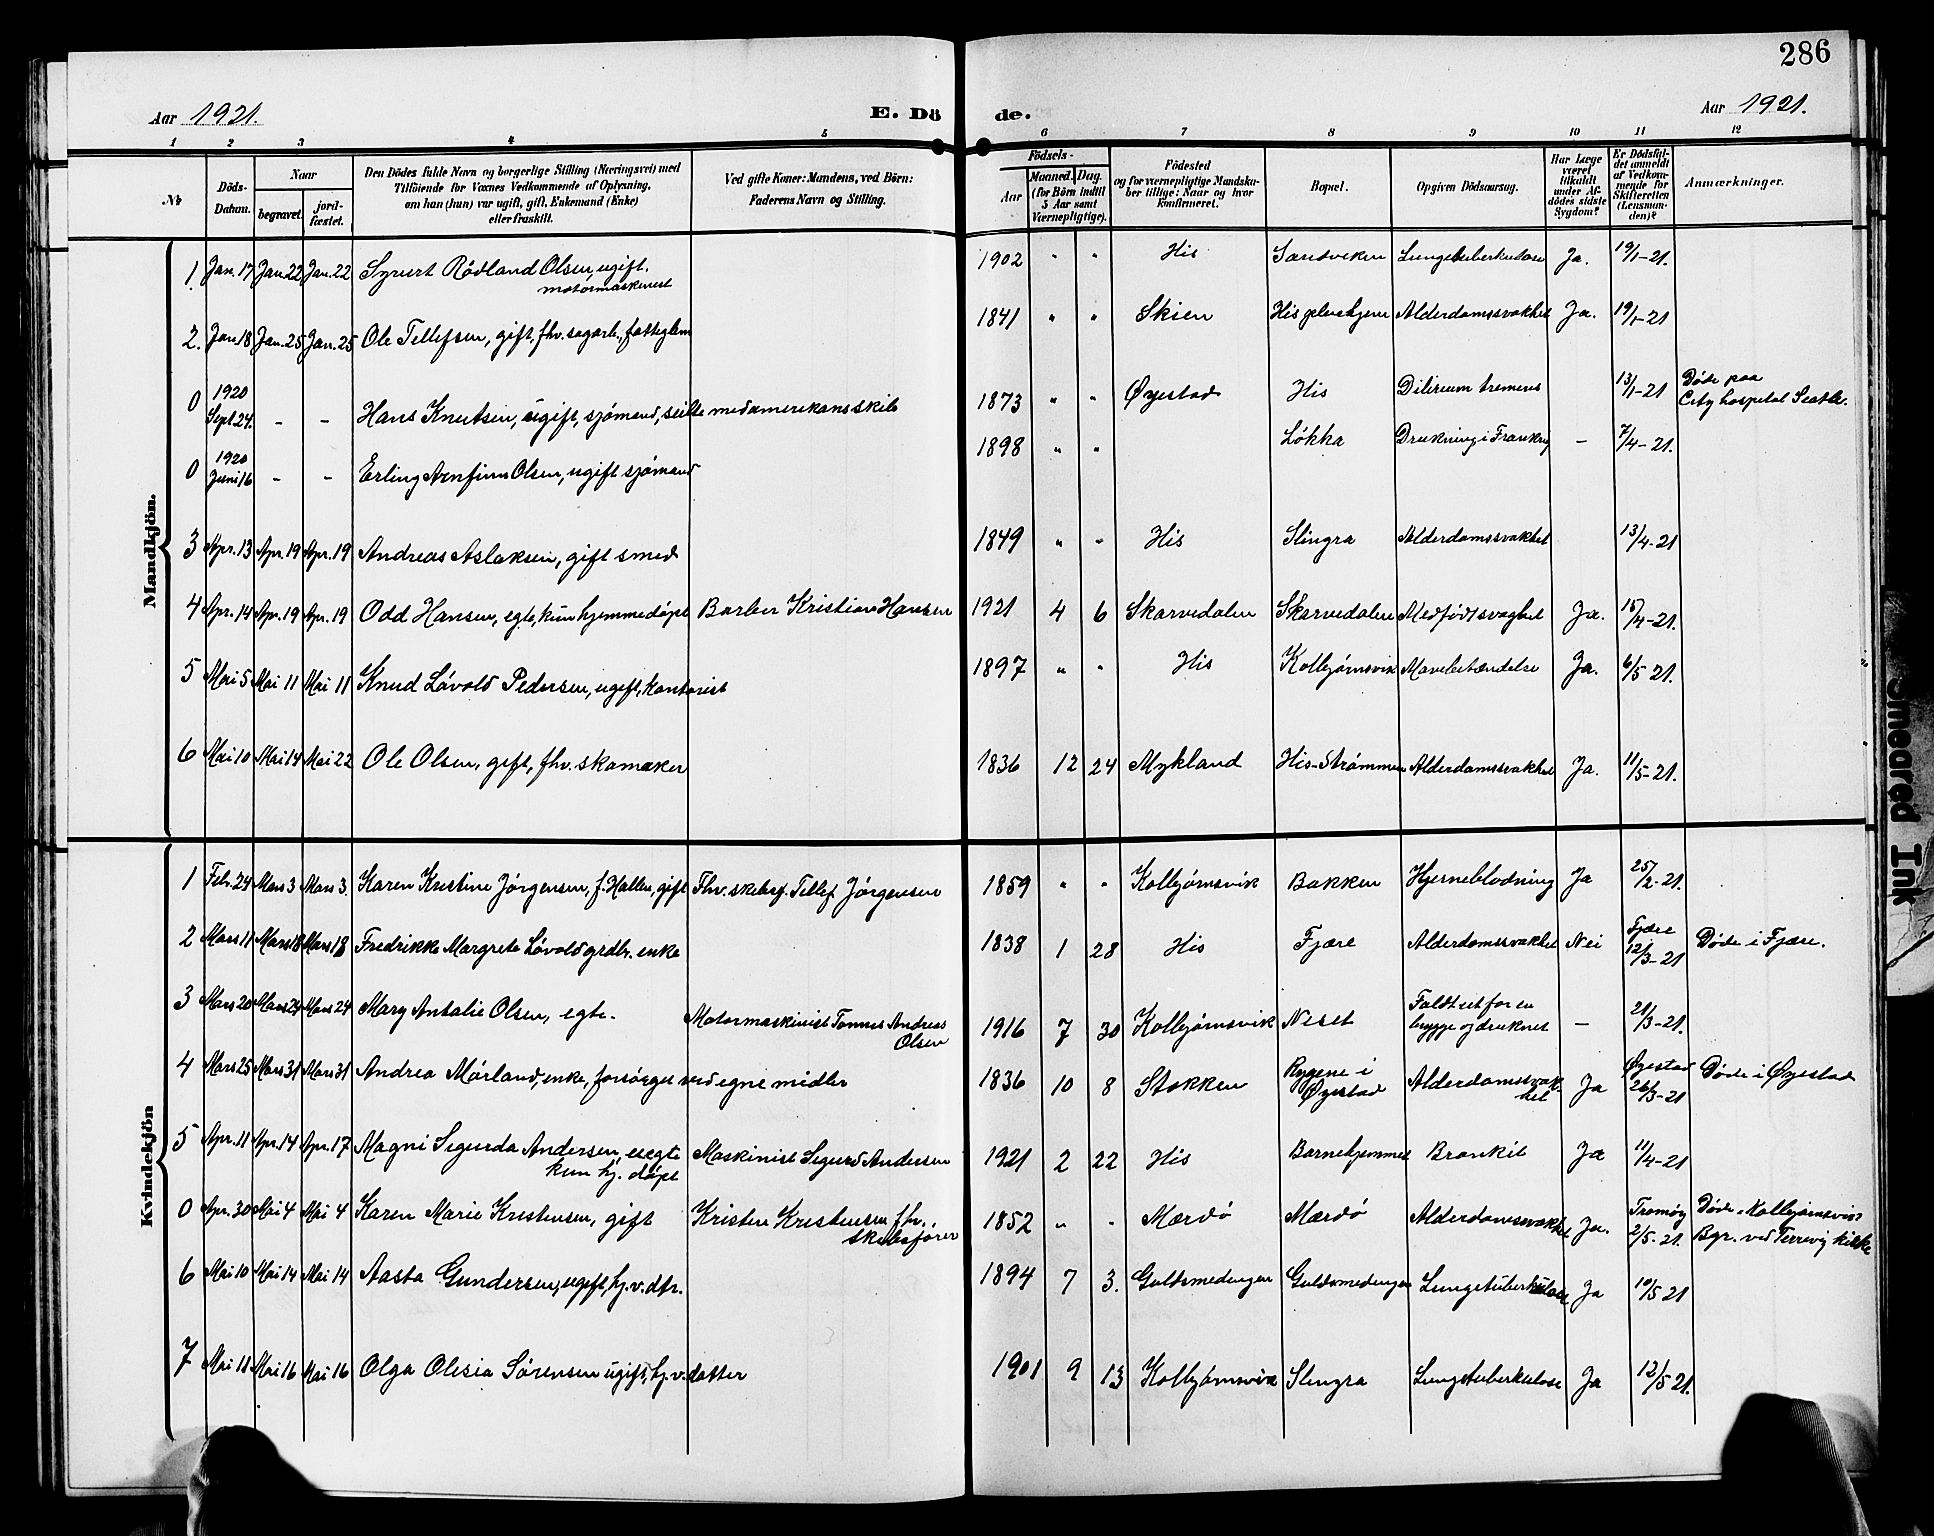 286
Aar 1921. E. Dö de. Aar 1921.
1 2 3 4 5 6 7 8 9 10 11 12
№
Döds-Datum.
Naar
begravet.
jord-fæstet.
Den Dödes fulde Navn og borgerlige Stilling (Næringsvei) med
Tilföiende for Voxnes Vedkommende af Oplysning,
om han (hun) var ugift, gift, Enkemand (Enke)
eller fraskilt.
Ved gifte Koner: Mandens, ved Börn:
Faderens Navn og Stilling.
Födsels-
Aar
Maaned. Dag.
(for Börn indtil
5 Aar samt
Værnepligtige).
Födested
og for værnepligtige Mandska-
ber tillige: Naar og hvor
konfirmeret.
Bopæl.
Opgiven Dödsaarsag.
Har Læge
været
tilkaldt
under Af-
dödes sidste
Sygdom?
Er Dödsfal-
det anmeldt
af Vedkom-
mende for
Skifteretten
(Lensman-
den)?
Anmærkninger.
Mandkjön.
1. Jan. 17 Jan. 22 Jan. 22 Syvert Rödland Olsen, ugift. 1902 " " His Sandviken Lungetuberkulose Ja. 19/1-21.
motormaskinist
2. Jan. 18 Jan. 25 Jan. 25 Ole Tellefsen, gift, fhv. sagarb., fattiglem 1841 " " Skien His pleiehjem Alderdomssvakhet Ja. 19/1-21
0 1920 Sept. 24. - - Hans Knutsen, ugift, sjömand, seilte med amerikansk skib 1873 " " Øyestad His Dilirium tremens 13/1-21 Døde paa
City hospital Seatle.
0 1920 Juni 16 - - Erling Arnfinn Olsen, ugift sjömand 1898 " " Løkka Drukning i Frankrg - 7/4-21.
3 Apr. 13 Apr. 19 Apr. 19 Andreas Aslaksen, gift smed 1849 " " His Slingra Alderdomssvakhet 13/4-21
4 Apr. 14 Apr. 19 Apr. 19 Odd Hansen, egte, kun hjemmedöpt Barber Kristian Hansen 1921 4 6 Skarvedalen Skarvedalen Medfødt svaghet Ja. 15/4-21.
5 Mai 5 Mai 11 Mai 11 Knud Lövold Pedersen, ugift, kontorist 1897 " " His Kolbjørnsvik Mavebetændelse Ja. 6/5-21.
6 Mai 10 Mai 14 Mai 22 Ole Olsen, gift, fhv. skomaker 1836 12 24 Mykland His-Strømmen Alderdomssvakhet Ja. 11/5-21.
Kvindekjön
1 Febr. 24 Mars 3 Mars 3. Karen Kristine Jørgensen, f. Hallen, gift Fhv. skibsf. Tellef Jørgensen 1859 " " Kolbjørnsvik Bakken Hjerneblødning Ja 25/2-21.
2 Mars 11 Mars 18 Mars 18 Fredrikke Margrete Lövold grdbr. enke 1838 1 28 His Fjære Alderdomssvakhet Nei Fjære 12/3-21 Døde i Fjære.
3 Mars 20 Mars 24 Mars 24 Mary Antalie Olsen, egte. Motormaskinist Tønnes Andreas Olsen 1916 7 30 Kolbjørnsvik Neset Faldt ut for en
brygge og druknet - 21/3-21.
4 Mars 25 Mars 31 Mars 31 Andrea Mörland, enke, forsörget ved egne midler 1836 10 8 Stokken Rygene i Øyestad Alderdomssvakhet Ja Øyestad 26/3-21 Døde i Øyestad
5 Apr. 11 Apr. 14 Apr. 17 Magni Sigurda Andersen, egte Maskinist Sigurd Andersen 1921 2 22 His Barnehjemmet Bronkit Ja 11/4-21
kun hj. döpt
0 Apr. 30 Mai 4 Mai 4 Karen Marie Kristensen, gift Kristen Kristensen fhv. skibsfører 1852 " " Mærdö Mærdö Alderdomssvakhet Ja. Tromøy 2/5-21. Døde i Kolbjørnsvik
Bgr. ved Færvig kirke
6 Mai 10 Mai 14 Mai 14 Aasta Gundersen, ugift, hj.v. dtr. 1894 7 3. Guldsmedengen Guldsmedengen Lungetuberkulose Ja 10/5 21
7 Mai 11 Mai 16 Mai 16 Olga Olesia Sørensen ugift, hj.v. datter 1901 9 13 Kolbjørnsvik Slingra Lungetuberkulose Ja 12/5 21.
Smeared Ink